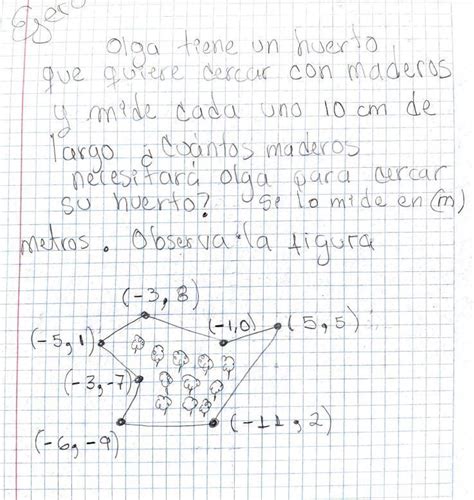 Ejer
Olga tiene un huerto
que quiere cercar con maderos
y mide cada uno 10 cm de
largo ¿Cuántos maderos
necesitará olga para cercar
su huerto? Se lo mide en (m)
metros. Observa la figura
(-3, 8)
(-5, 1) (-1,0) (5, 5)
(-3, -7)
(-6, -9) (-11, 2)